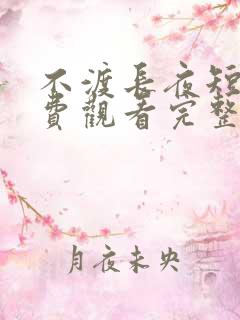 不渡長夜短
費觀看完整
月夜未央